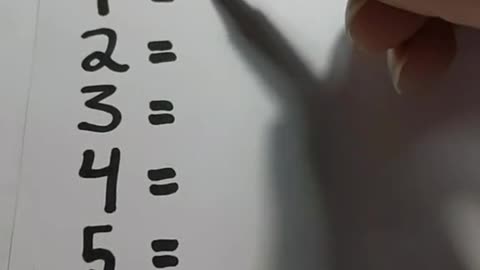 2 =
3 =
4 =
5 =